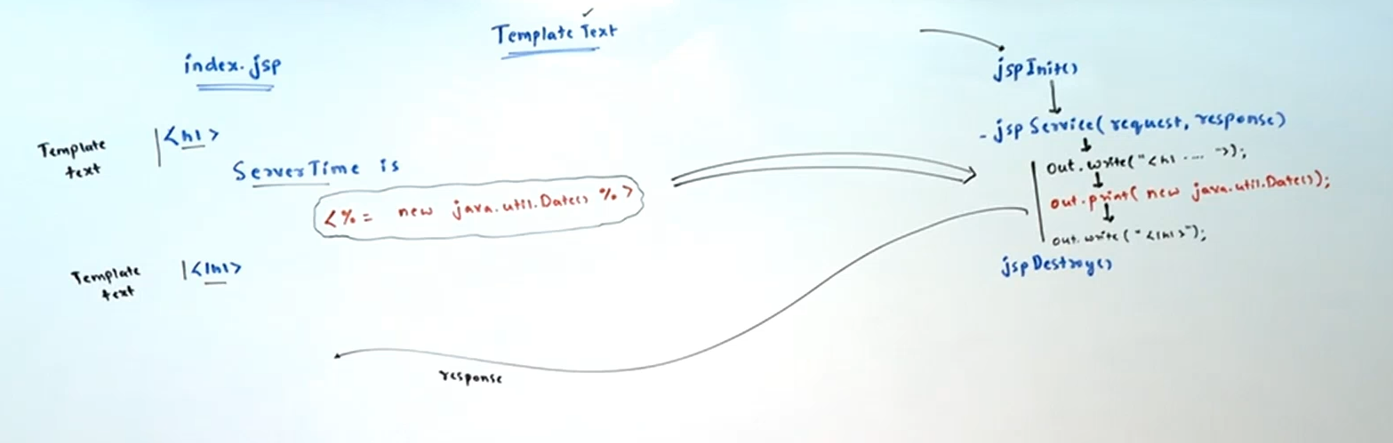 Template Text
index.jsp
Template text
<h1>
ServerTime is
<%= new java.util.Date() %>
Template text
</h1>
response
jspInit()
-jspService(request, response)
out.write("<h1 .... ">);
out.print( new java.util.Date());
out.write("</h1>");
jspDestroy()